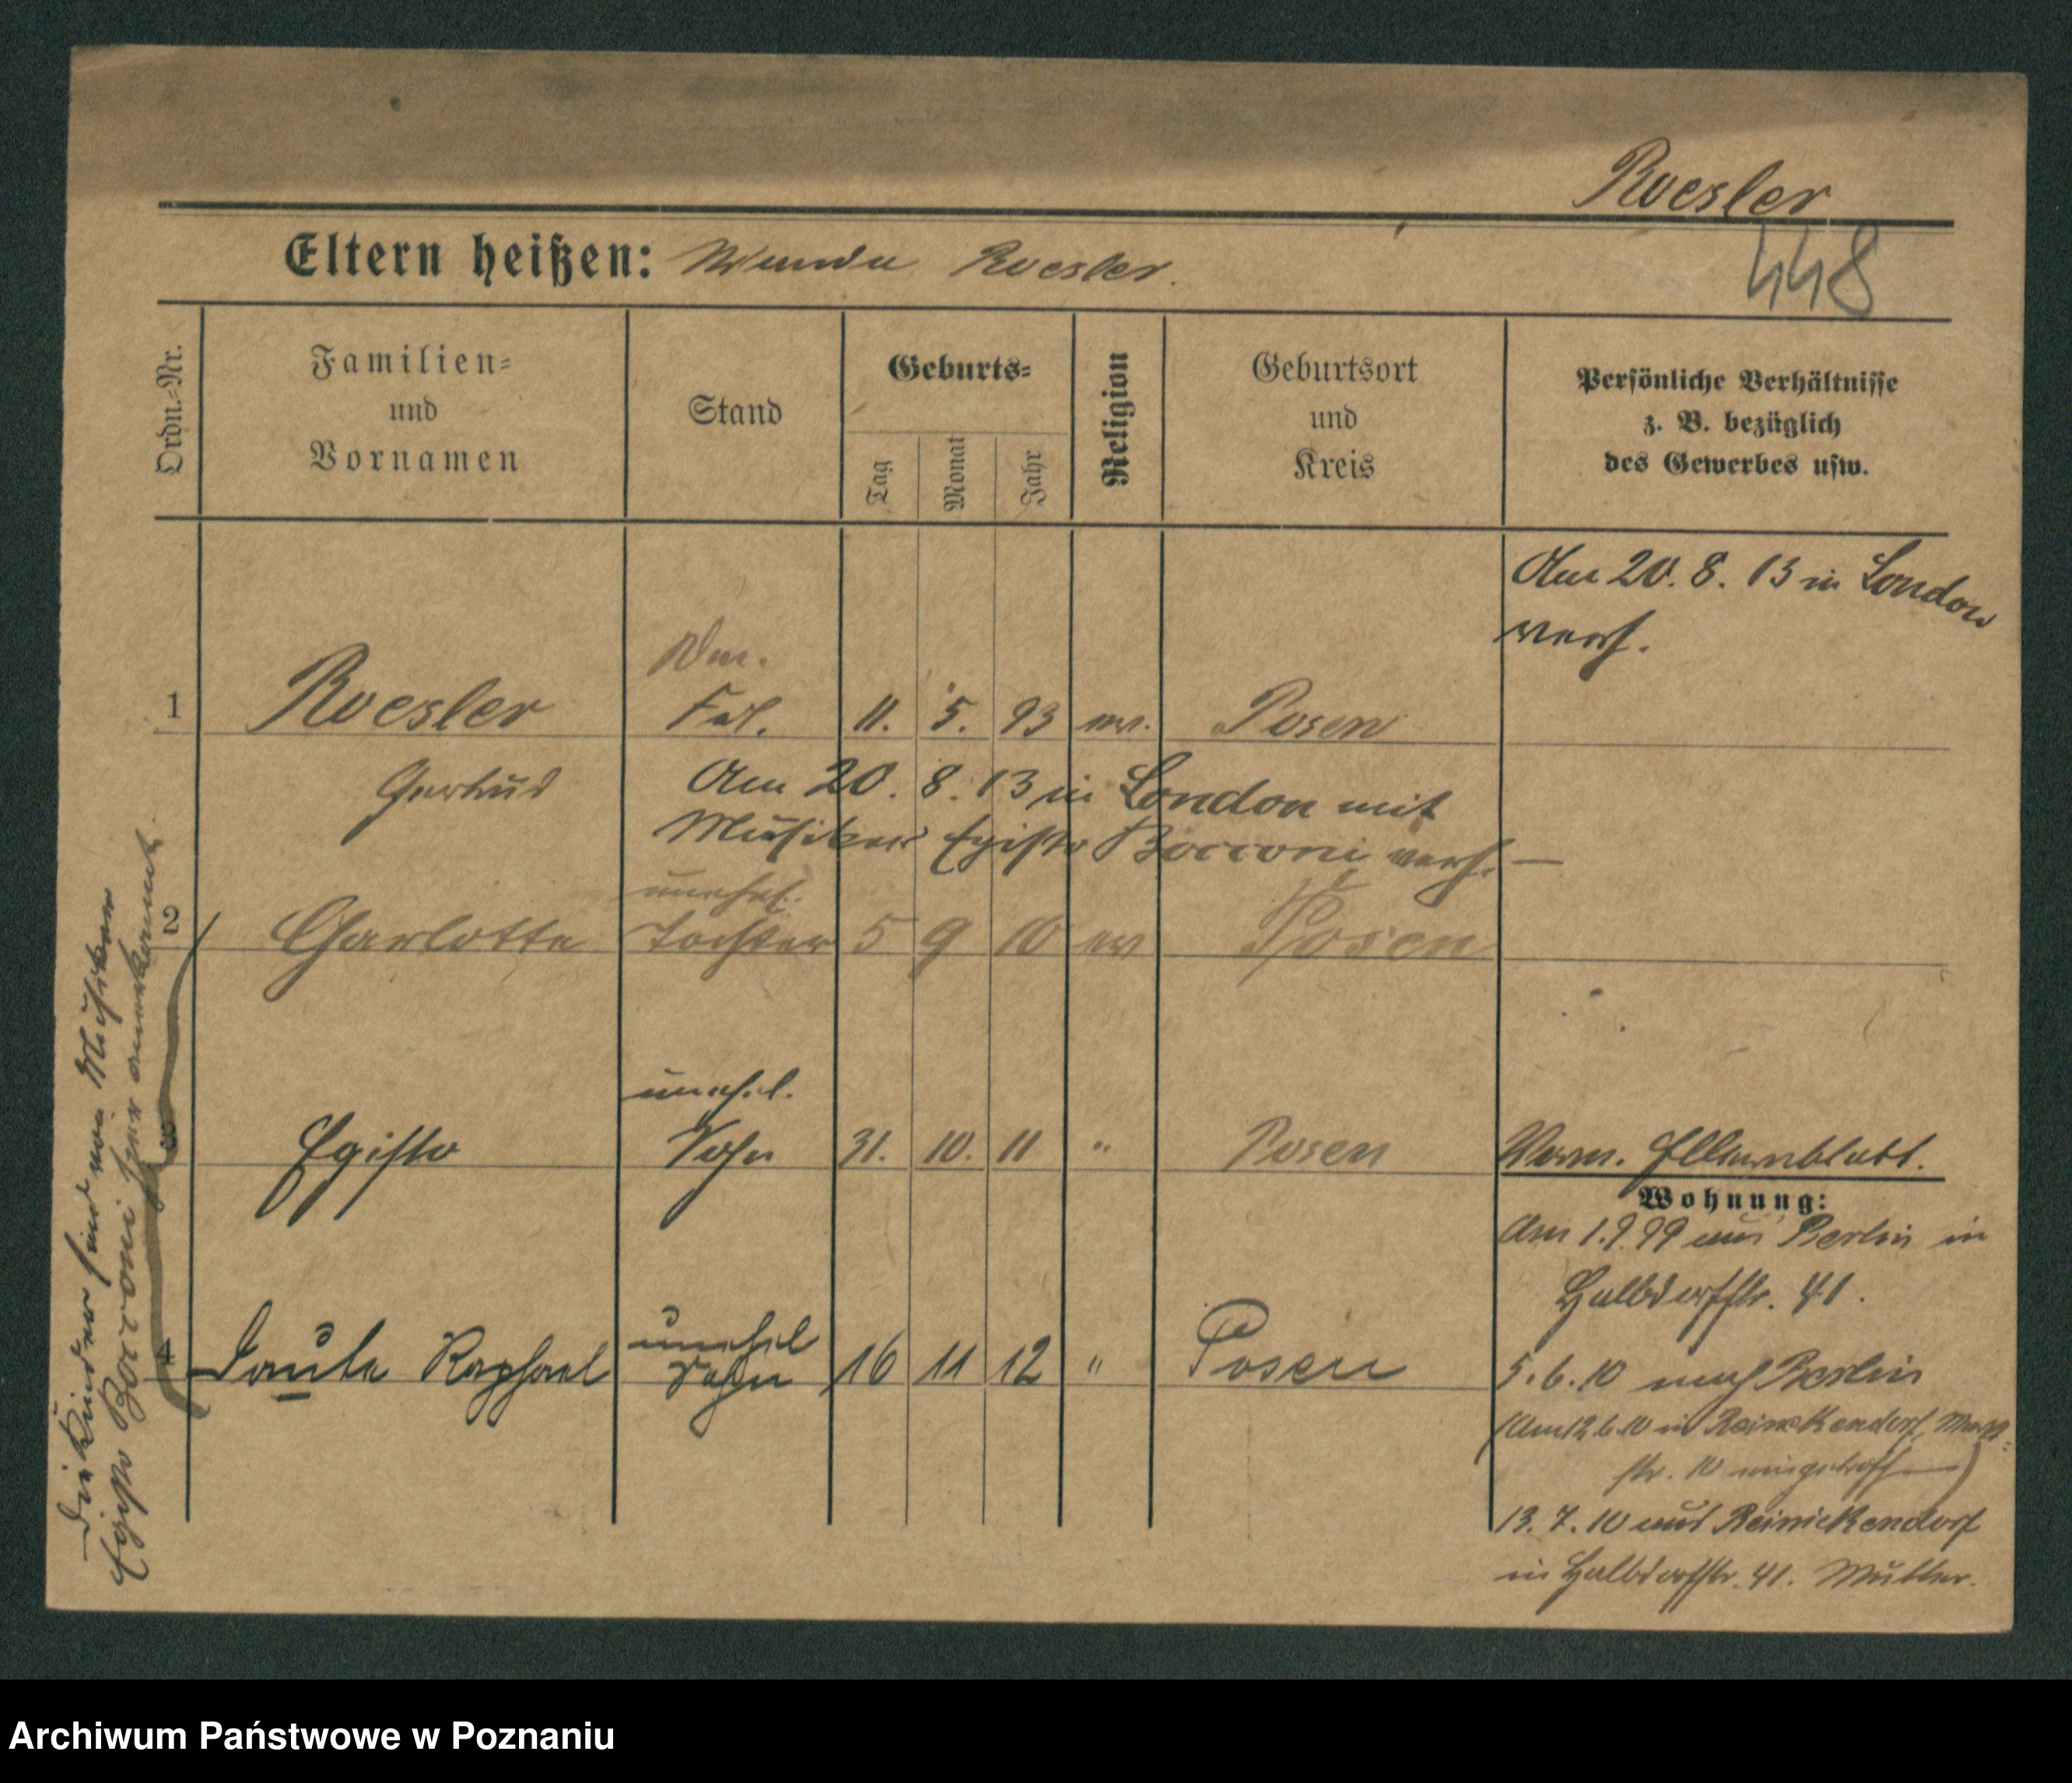 Roesler
448
Eltern heißen: Wanda Roesler.
Ordn.=Nr.
Familien=
und
Vornamen
Stand
Geburts=
Tag
Monat
Jahr
Religion
Geburtsort
und
Kreis
Persönliche Verhältnisse
z. B. bezüglich
des Gewerbes usw.
Am 20. 8. 13 in London
verh.
1 Roesler Frl. 11. 5. 93 ev. Posen
Gertrud
Am 20. 8. 13 in London mit
Musiker Egisto Bocconi verh. —
unehel.
2 Charlotte Tochter 5 9 10 ev Posen
unehel.
3 Egisto Sohn 31. 10. 11 " Posen
Verm. Elternblatt.
Wohnung:
Am 1.9.99 aus Berlin in
Halbdorfstr. 41.
unehel
4 Raphael Sohn 16 11 12 " Posen
5.6.10 nach Berlin
(Am 12.6.10 in Reinickendorf,
str. 10 eingetroff)
13. 7. 10 aus Reinickendorf
in Halbdorfstr. 41. Mutter.
Die Kinder sind von Musiker
Egisto Bocconi hier anerkannt.
Archiwum Państwowe w Poznaniu